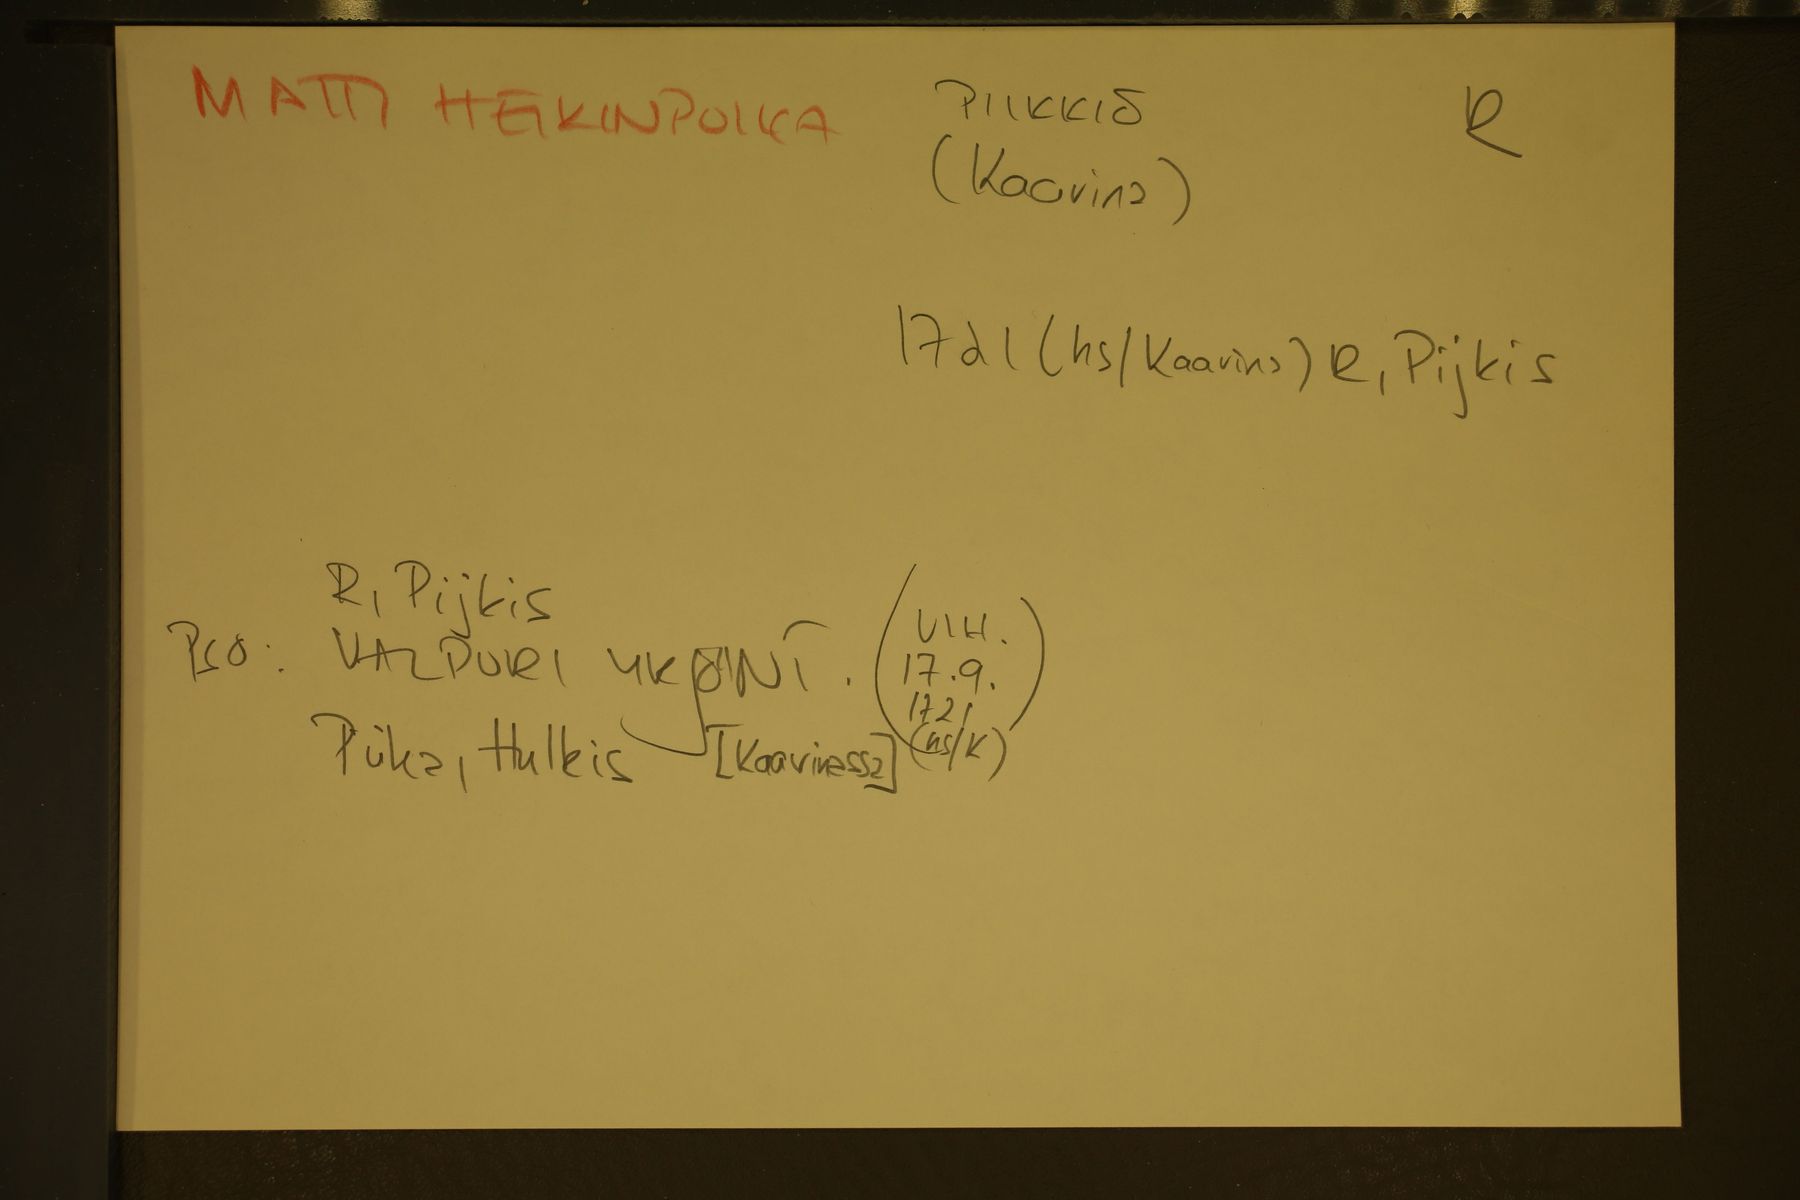 MATTI HEIKINPOIKA PIIKKIÖ R
(Kaarina)
1721 (hs/Kaarina) R, Pijkis
R, Pijkis
Pso: VALPURI YRJÖNT. (VIH. 17.9. 1721 (hs/K))
Piika, Hulkis [Kaarinassa]